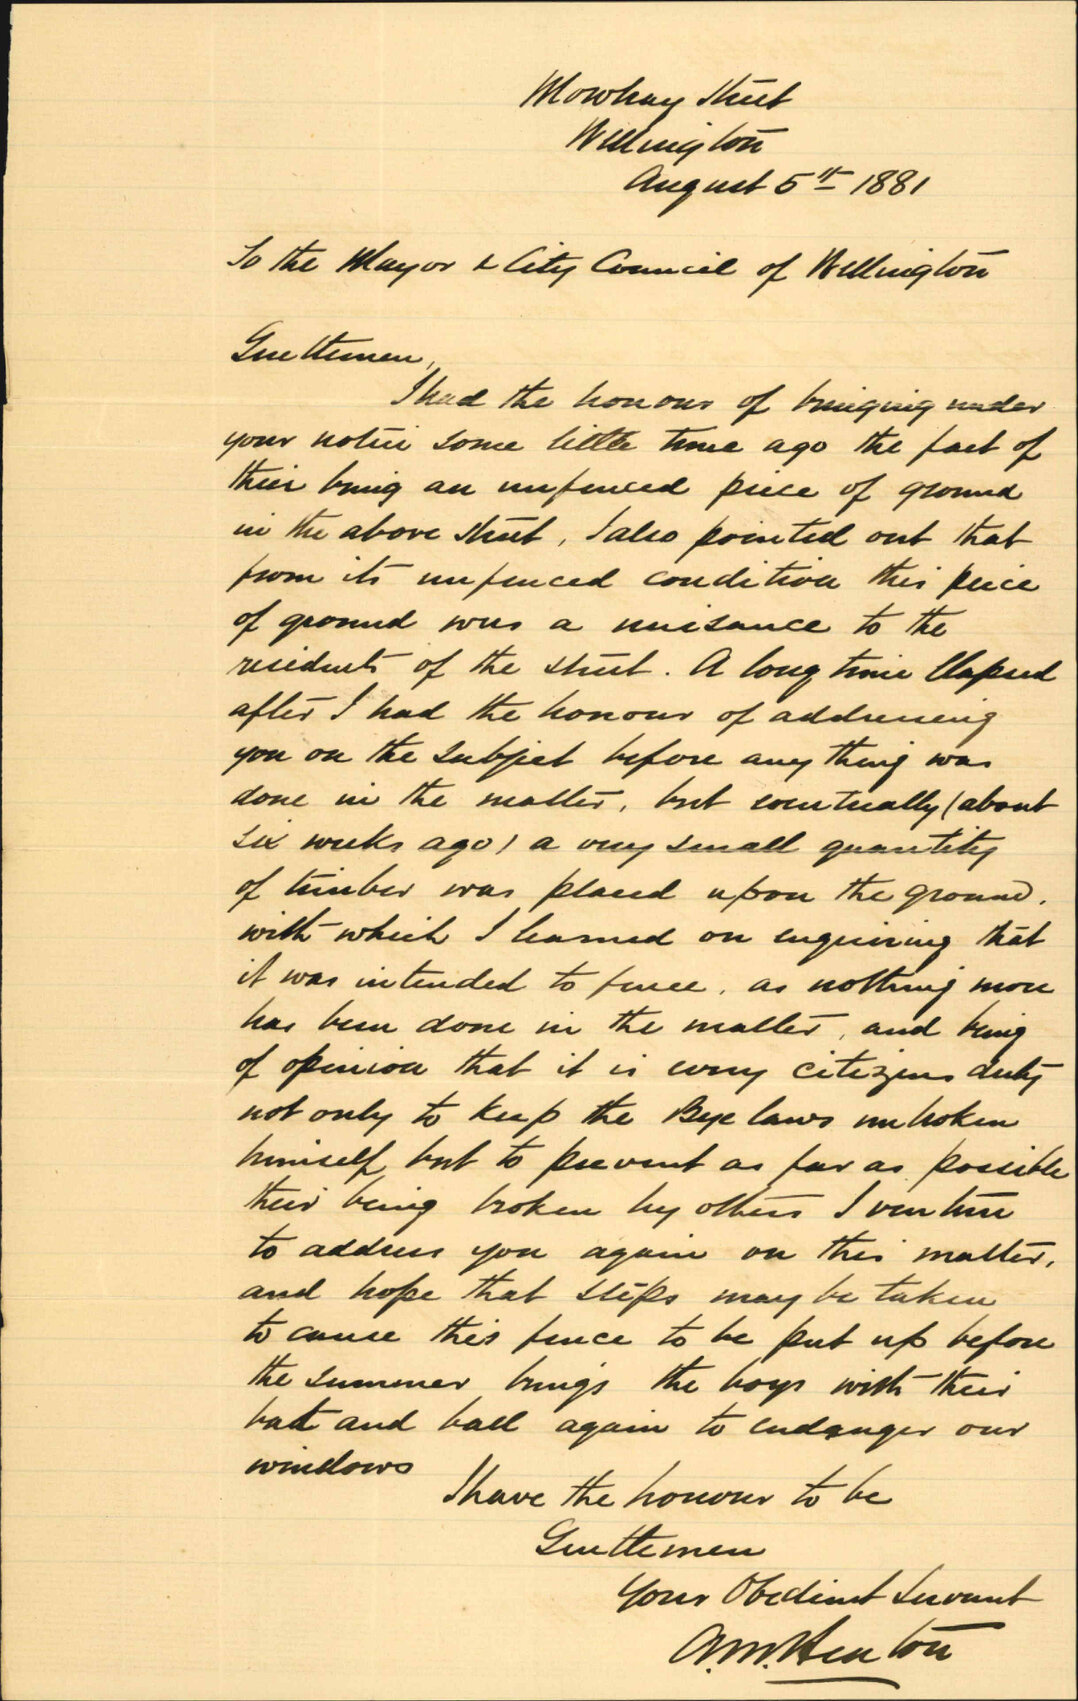 Mowbray Street
Wellington
August 5th 1881
To the Mayor & City Council of Wellington
Gentlemen,
I had the honour of bringing under
your notice some little time ago the fact of
their being an unfenced piece of ground
in the above street, I also pointed out that
from its unfenced condition this peice
of ground was a nuisance to the
residents of the street. A long time Elapsed
after I had the honour of addressing
you on the subject before any thing was
done in the matter, but eventually (about
six weeks ago) a very small quantity
of timber was placed upon the ground.
with which I learned on enquiring that
it was intended to fence. as nothing more
has been done in the matter, and being
of opinion that it is every citizens duty
not only to keep the Bye laws unbroken
himself but to prevent as far as possible
their being broken by others I venture
to address you again on this matter.
and hope that steps may be taken
to cause this fence to be put up before
the summer brings the boys with their
bat and ball again to endanger our
windows
I have the honour to be
Gentlemen
Your Obedient Servant